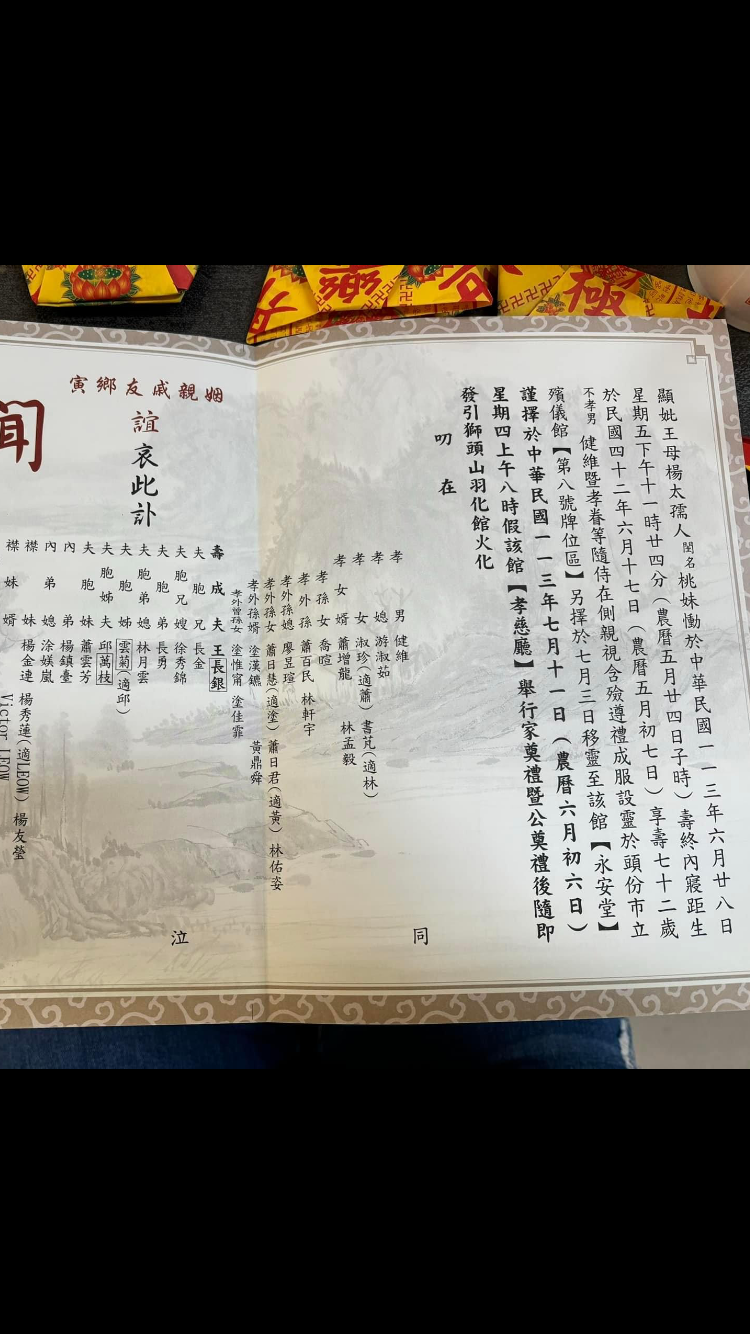 顯妣王母楊太孺人閨名桃妹慟於中華民國一一三年六月廿八日
星期五下午十一時廿四分（農曆五月廿四日子時）壽終內寢距生
於民國四十二年六月十七日（農曆五月初七日）享壽七十二歲
不孝男健維暨孝眷等隨侍在側親視含殮遵禮成服設靈於頭份市立
殯儀館【第八號牌位區】另擇於七月三日移靈至該館【永安堂】
謹擇於中華民國一一三年七月十一日（農曆六月初六日）
星期四上午八時假該館【孝慈廳】舉行家奠禮暨公奠禮後隨即
發引獅頭山羽化館火化
叨在
孝男 健維
孝媳 游淑茹
孝女 淑珍(適蕭) 書芃(適林)
孝女婿 蕭增龍 林孟毅
孝孫女 喬暄
孝外孫 蕭百民 林軒宇
孝外孫媳 廖昱瑄
孝外孫女 蕭日慈(適塗) 蕭日君(適黃) 林佑姿
孝外孫婿 塗漢鑣 黃鼎舜
孝外曾孫女 塗惟甯 塗佳霏
同
泣
壽成夫 王長銀
夫胞兄 長金
夫胞兄嫂 徐秀錦
夫胞弟 長勇
夫胞弟媳 林月雲
夫胞姊 雲菊(適邱)
夫胞姊夫 邱萬枝
夫胞妹 蕭雲芳
內弟 楊鎮臺
內弟媳 涂媄嵐
襟妹 楊金連 楊秀蓮(適LEOW) 楊友瑩
襟妹婿 Victor LEOW
姻親戚友鄉寅
誼哀此訃
聞